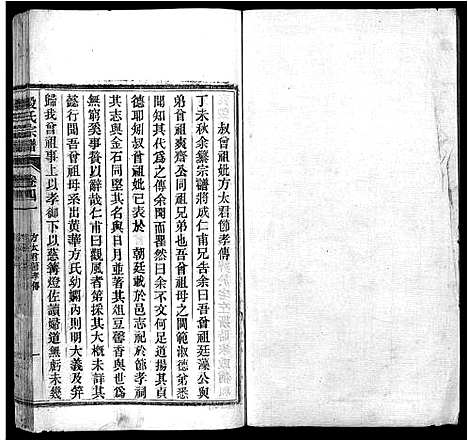 叔曾祖妣方太君節孝傳
丁未秋余纂宗譜將成仁甫兄吿余曰吾曾祖廷藻公與
弟曾祖爽齋公同祖兄弟也吾曾祖母之嫺淑德弟悉
聞知其代爲之傳余悶而思之余曰余不文何足道揚其貞
德耶矧叔曾祖妣已表於　朝廷載於邑志祀於節孝祠
其志與金石同堅其名與日月並著其俎豆馨香與世爲
無窮奚事贅以辭哉仁甫曰觀風者第揭其大槪未詳其
懿行聞吾曾祖母系出黃華方氏幼嫻內則明大義及笄
歸我曾祖事上以孝御下以慈篝燈佐讀婦道無虧未幾
段氏宗譜
卷四
方太君節孝傳